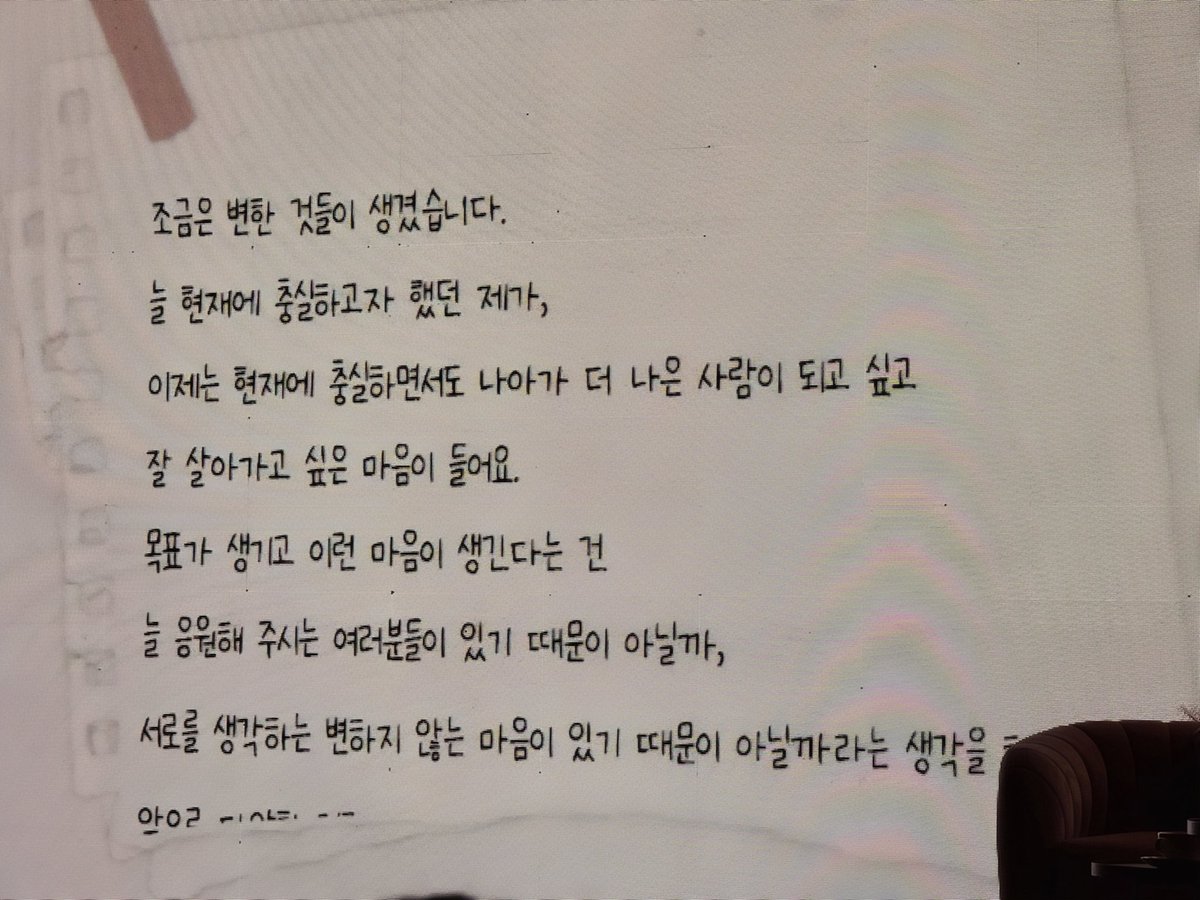 조금은 변한 것들이 생겼습니다.
늘 현재에 충실하고자 했던 제가,
이제는 현재에 충실하면서도 나아가 더 나은 사람이 되고 싶고
잘 살아가고 싶은 마음이 들어요.
목표가 생기고 이런 마음이 생긴다는 건
늘 응원해 주시는 여러분들이 있기 때문이 아닐까,
서로를 생각하는 변하지 않는 마음이 있기 때문이 아닐까라는 생각을